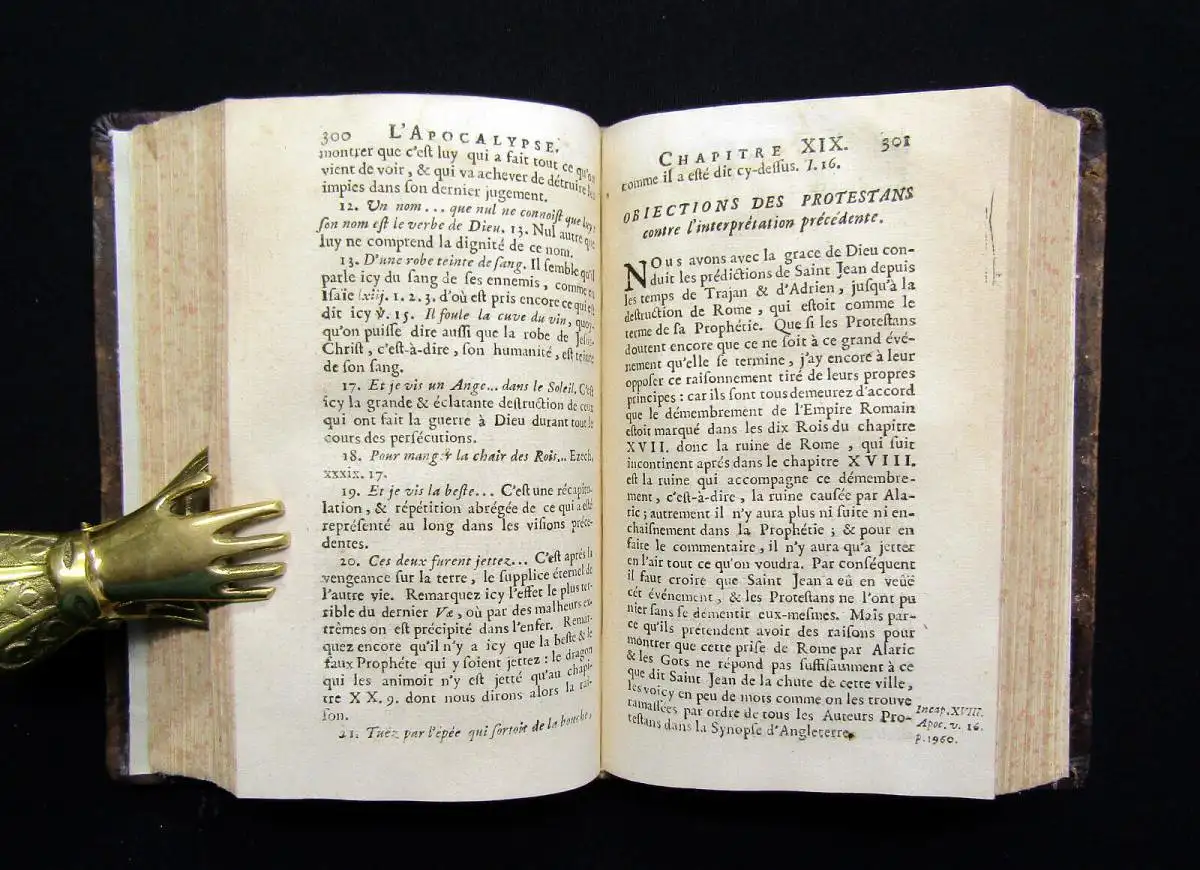 300 L'APOCALYPSE.
montrer que c'est luy qui a fait tout ce qu'on
vient de voir, & qui va achever de détruire les
impies dans son dernier jugement.
12. Un nom... que nul ne connoist que luy:
son nom est le verbe de Dieu. 13. Nul autre que
luy ne comprend la dignité de ce nom.
13. D'une robe teinte de sang. Il semble qu'il
parle icy du sang de ses ennemis, comme en
Isaïe lxiij. 1. 2. 3. d'où est pris encore ce qui est
dit icy ℣. 15. Il foule la cuve du vin, quoy-
qu'on puisse dire aussi que la robe de Jesus-
Christ, c'est-à-dire, son humanité, est teinte
de son sang.
17. Et je vis un Ange... dans le Soleil. C'est
icy la grande & éclatante destruction de ceux
qui ont fait la guerre à Dieu durant tout le
cours des persécutions.
18. Pour mang la chair des Rois... Ezech.
xxxix. 17.
19. Et je vis la beste... C'est une récapitu-
lation, & répétition abrégée de ce qui a esté
représenté au long dans les visions précé-
dentes.
20. Ces deux furent jettez... C'est aprés la
vengeance sur la terre, le supplice éternel de
l'autre vie. Remarquez icy l'effet le plus ter-
rible du dernier Væ, où par des malheurs ex-
trêmes on est précipité dans l'enfer. Remar-
quez encore qu'il n'y a icy que la beste & le
faux Prophéte qui y soient jettez: le dragon
qui les animoit n'y est jetté qu'au chapi-
tre XX. 9. dont nous dirons alors la rai-
son.
21. Tuez par l'épée qui sortoit de la bouche,
CHAPITRE XIX. 301
comme il a esté dit cy-dessus. I. 16.
OBIECTIONS DES PROTESTANS
contre l'interprétation précédente.
NOus avons avec la grace de Dieu con-
duit les prédictions de Saint Jean depuis
les temps de Trajan & d'Adrien, jusqu'à la
destruction de Rome, qui estoit comme le
terme de sa Prophétie. Que si les Protestans
doutent encore que ce ne soit à ce grand évé-
nement qu'elle se termine, j'ay encore à leur
opposer ce raisonnement tiré de leurs propres
principes: car ils sont tous demeurez d'accord
que le démembrement de l'Empire Romain
estoit marqué dans les dix Rois du chapitre
XVII. donc la ruine de Rome, qui suit
incontinent aprés dans le chapitre XVIII.
est la ruine qui accompagne ce démembre-
ment, c'est-à-dire, la ruine causée par Ala-
ric; autrement il n'y aura plus ni suite ni en-
chaisnement dans la Prophétie; & pour en
faire le commentaire, il n'y aura qu'a jetter
en l'air tout ce qu'on voudra. Par conséquent
il faut croire que Saint Jean a eû en veûë
cét événement, & les Protestans ne l'ont pu
nier sans se démentir eux-mesmes. Mais par-
ce qu'ils prétendent avoir des raisons pour
montrer que cette prise de Rome par Alaric
& les Gots ne répond pas suffisamment à ce
que dit Saint Jean de la chute de cette ville,
les voicy en peu de mots comme on les trouve
ramassées par ordre de tous les Auteurs Pro-
testans dans la Synopse d'Angleterre.
In cap. XVIII.
Apoc. v. 16.
p. 1960.